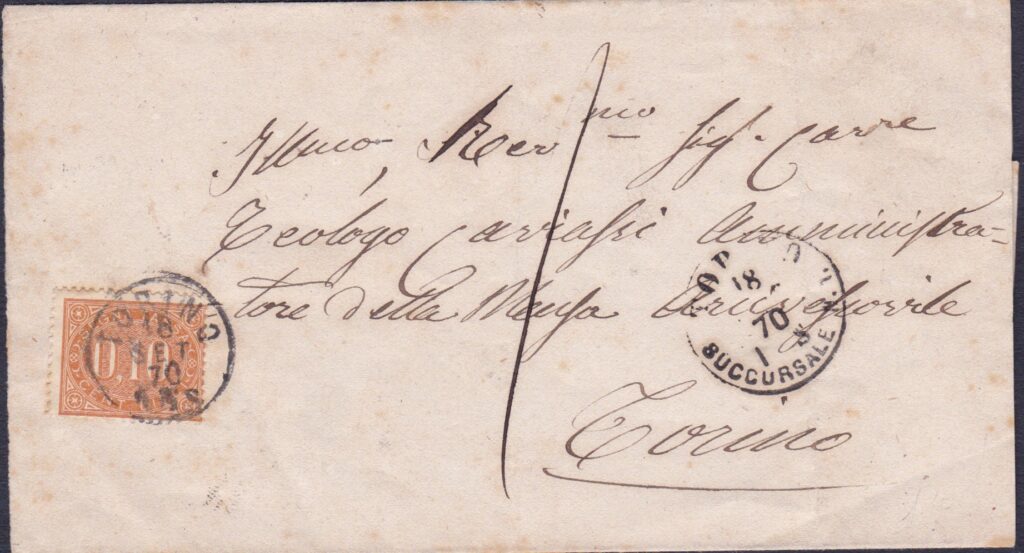 Illmo, Rev mo Sig. Carre
Teologo Cariassi Amministra-
tore della Mensa Arcivescovile
Torino
1
TORINO
18
SET
70
0,10
18
70
1
SUCCURSALE